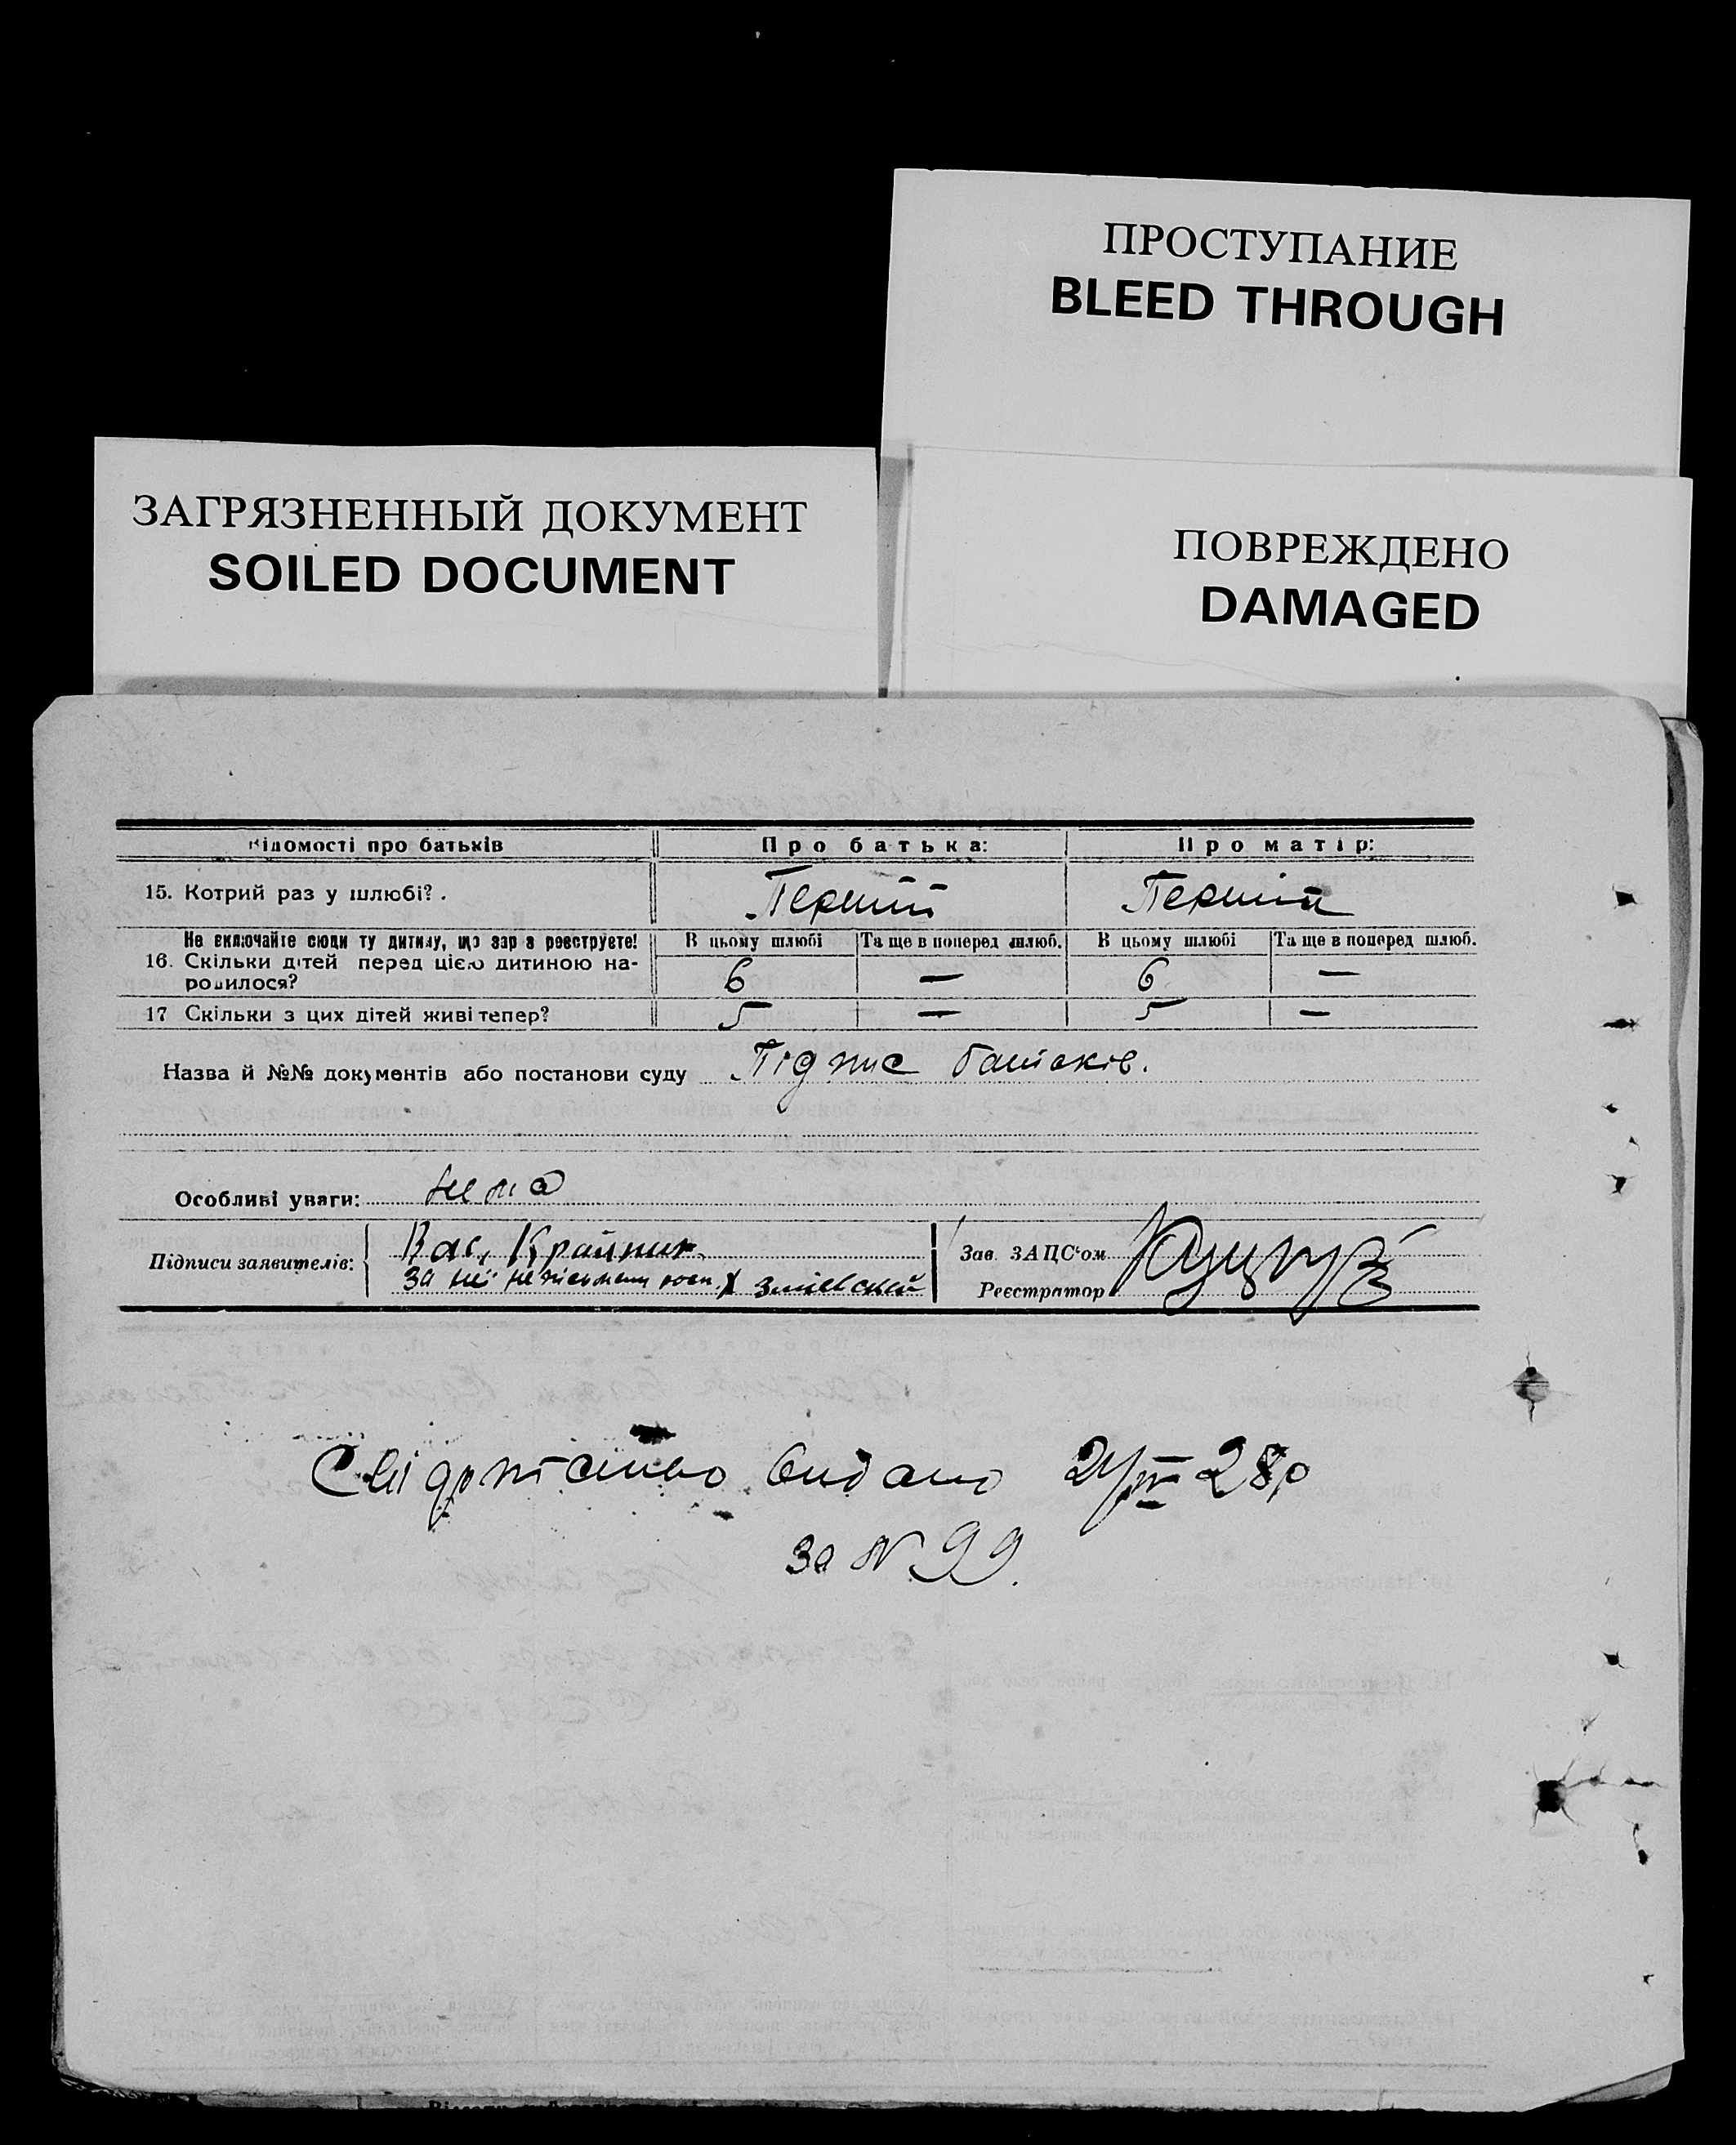 ПРОСТУПАНИЕ
BLEED THROUGH
ЗАГРЯЗНЕННЫЙ ДОКУМЕНТ
SOILED DOCUMENT
ПОВРЕЖДЕНО
DAMAGED
Відомості про батьків Про батька: Про матір:
15. Котрий раз у шлюбі? . Перший Перший
Не включайте сюди ту дитину, що зараз реєструєте! В цьому шлюбі Та ще в поперед шлюб. В цьому шлюбі Та ще в поперед шлюб.
16. Скільки дітей перед цією дитиною на-
родилося? 6 — 6 —
17 Скільки з цих дітей живі тепер? 5 — 5 —
Назва й №№ документів або постанови суду Підпис батьків.
Особливі уваги: нема
Підписи заявителів: Вас. Крайник
За неї неписьмени росп. Х Змієвский
Зав. ЗАЦС'ом
Реєстратор
Свідоцтво видано 28р
за N 99.